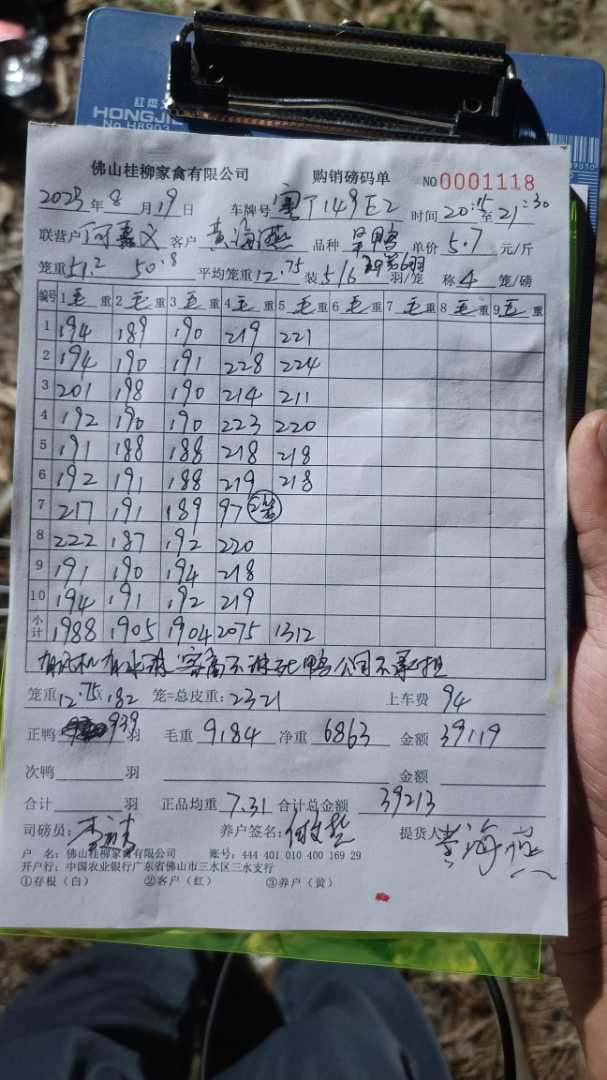 HONGJI
No.H8903
佛山桂柳家禽有限公司 购销磅码单 NO 0001118
2023年8月19日 车牌号 粤T149E2 时间 20:15至21:30
联营户 何嘉文 客户 黄海燕 品种 呈鸭 单价 5.7 元/斤
笼重 51.2 50.8 平均笼重 12.75 装 5/6 羽/笼 称 4 笼/磅
编号 1 毛重 2 毛重 3 毛重 4 毛重 5 毛重 6 毛重 7 毛重 8 毛重 9 毛重
1 194 189 190 219 221
2 194 190 191 228 224
3 201 198 190 214 211
4 192 190 190 223 220
5 191 188 188 218 218
6 192 191 188 219 218
7 217 191 189 97 2笼
8 222 187 192 220
9 191 190 194 218
10 194 191 192 219
小计 1988 1905 1904 2075 1312
有风机有水淋 客商不淋死鸭公司不承担
笼重 12.75 x 182 笼=总皮重: 2321 上车费 94
正鸭 939 羽 毛重 9184 净重 6863 金额 39119
次鸭 羽 金额
合计 羽 正品均重 7.31 合计总金额 39213
司磅员: 养户签名: 提货人: 黄海燕
户 名: 佛山桂柳家禽有限公司 账号: 444 401 010 400 169 29
开户行: 中国农业银行广东省佛山市三水区三水支行
①存根（白） ②客户（红） ③养户（黄）